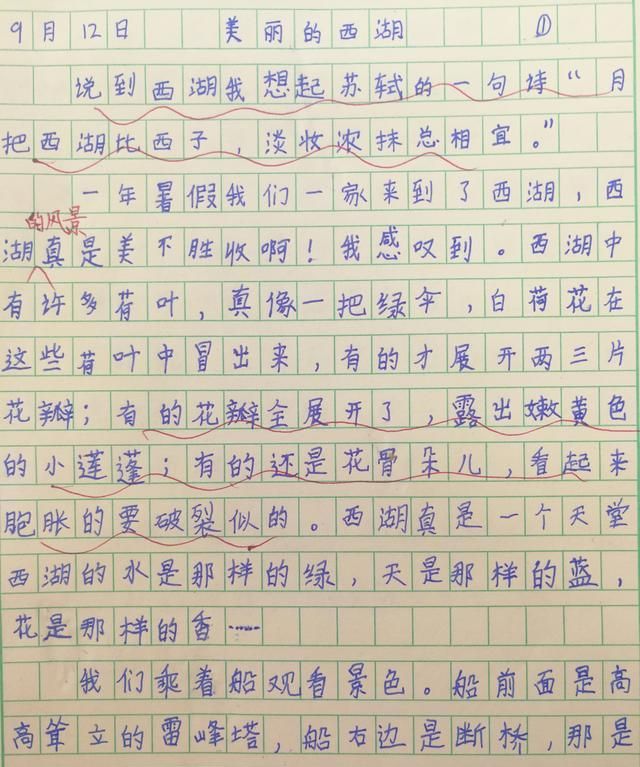 9月12日 美丽的西湖 ①
说到西湖我想起苏轼的一句诗“月
把西湖比西子，淡妆浓抹总相宜。”
一年暑假我们一家来到了西湖，西
的风景
湖真是美不胜收啊！我感叹到。西湖中
有许多荷叶，真像一把绿伞，白荷花在
这些荷叶中冒出来，有的才展开两三片
花瓣；有的花瓣全展开了，露出嫩黄色
的小莲蓬；有的还是花骨朵儿，看起来
胞胀的要破裂似的。西湖真是一个天堂
西湖的水是那样的绿，天是那样的蓝，
花是那样的香……
我们乘着船观看景色。船前面是高
高耸立的雷峰塔，船右边是断桥，那是